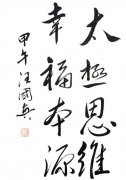 太極思維
幸福本源
甲午汪國興